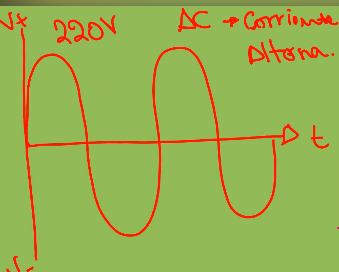 V+
220V
AC → Corriente
Alterna.
t
V-